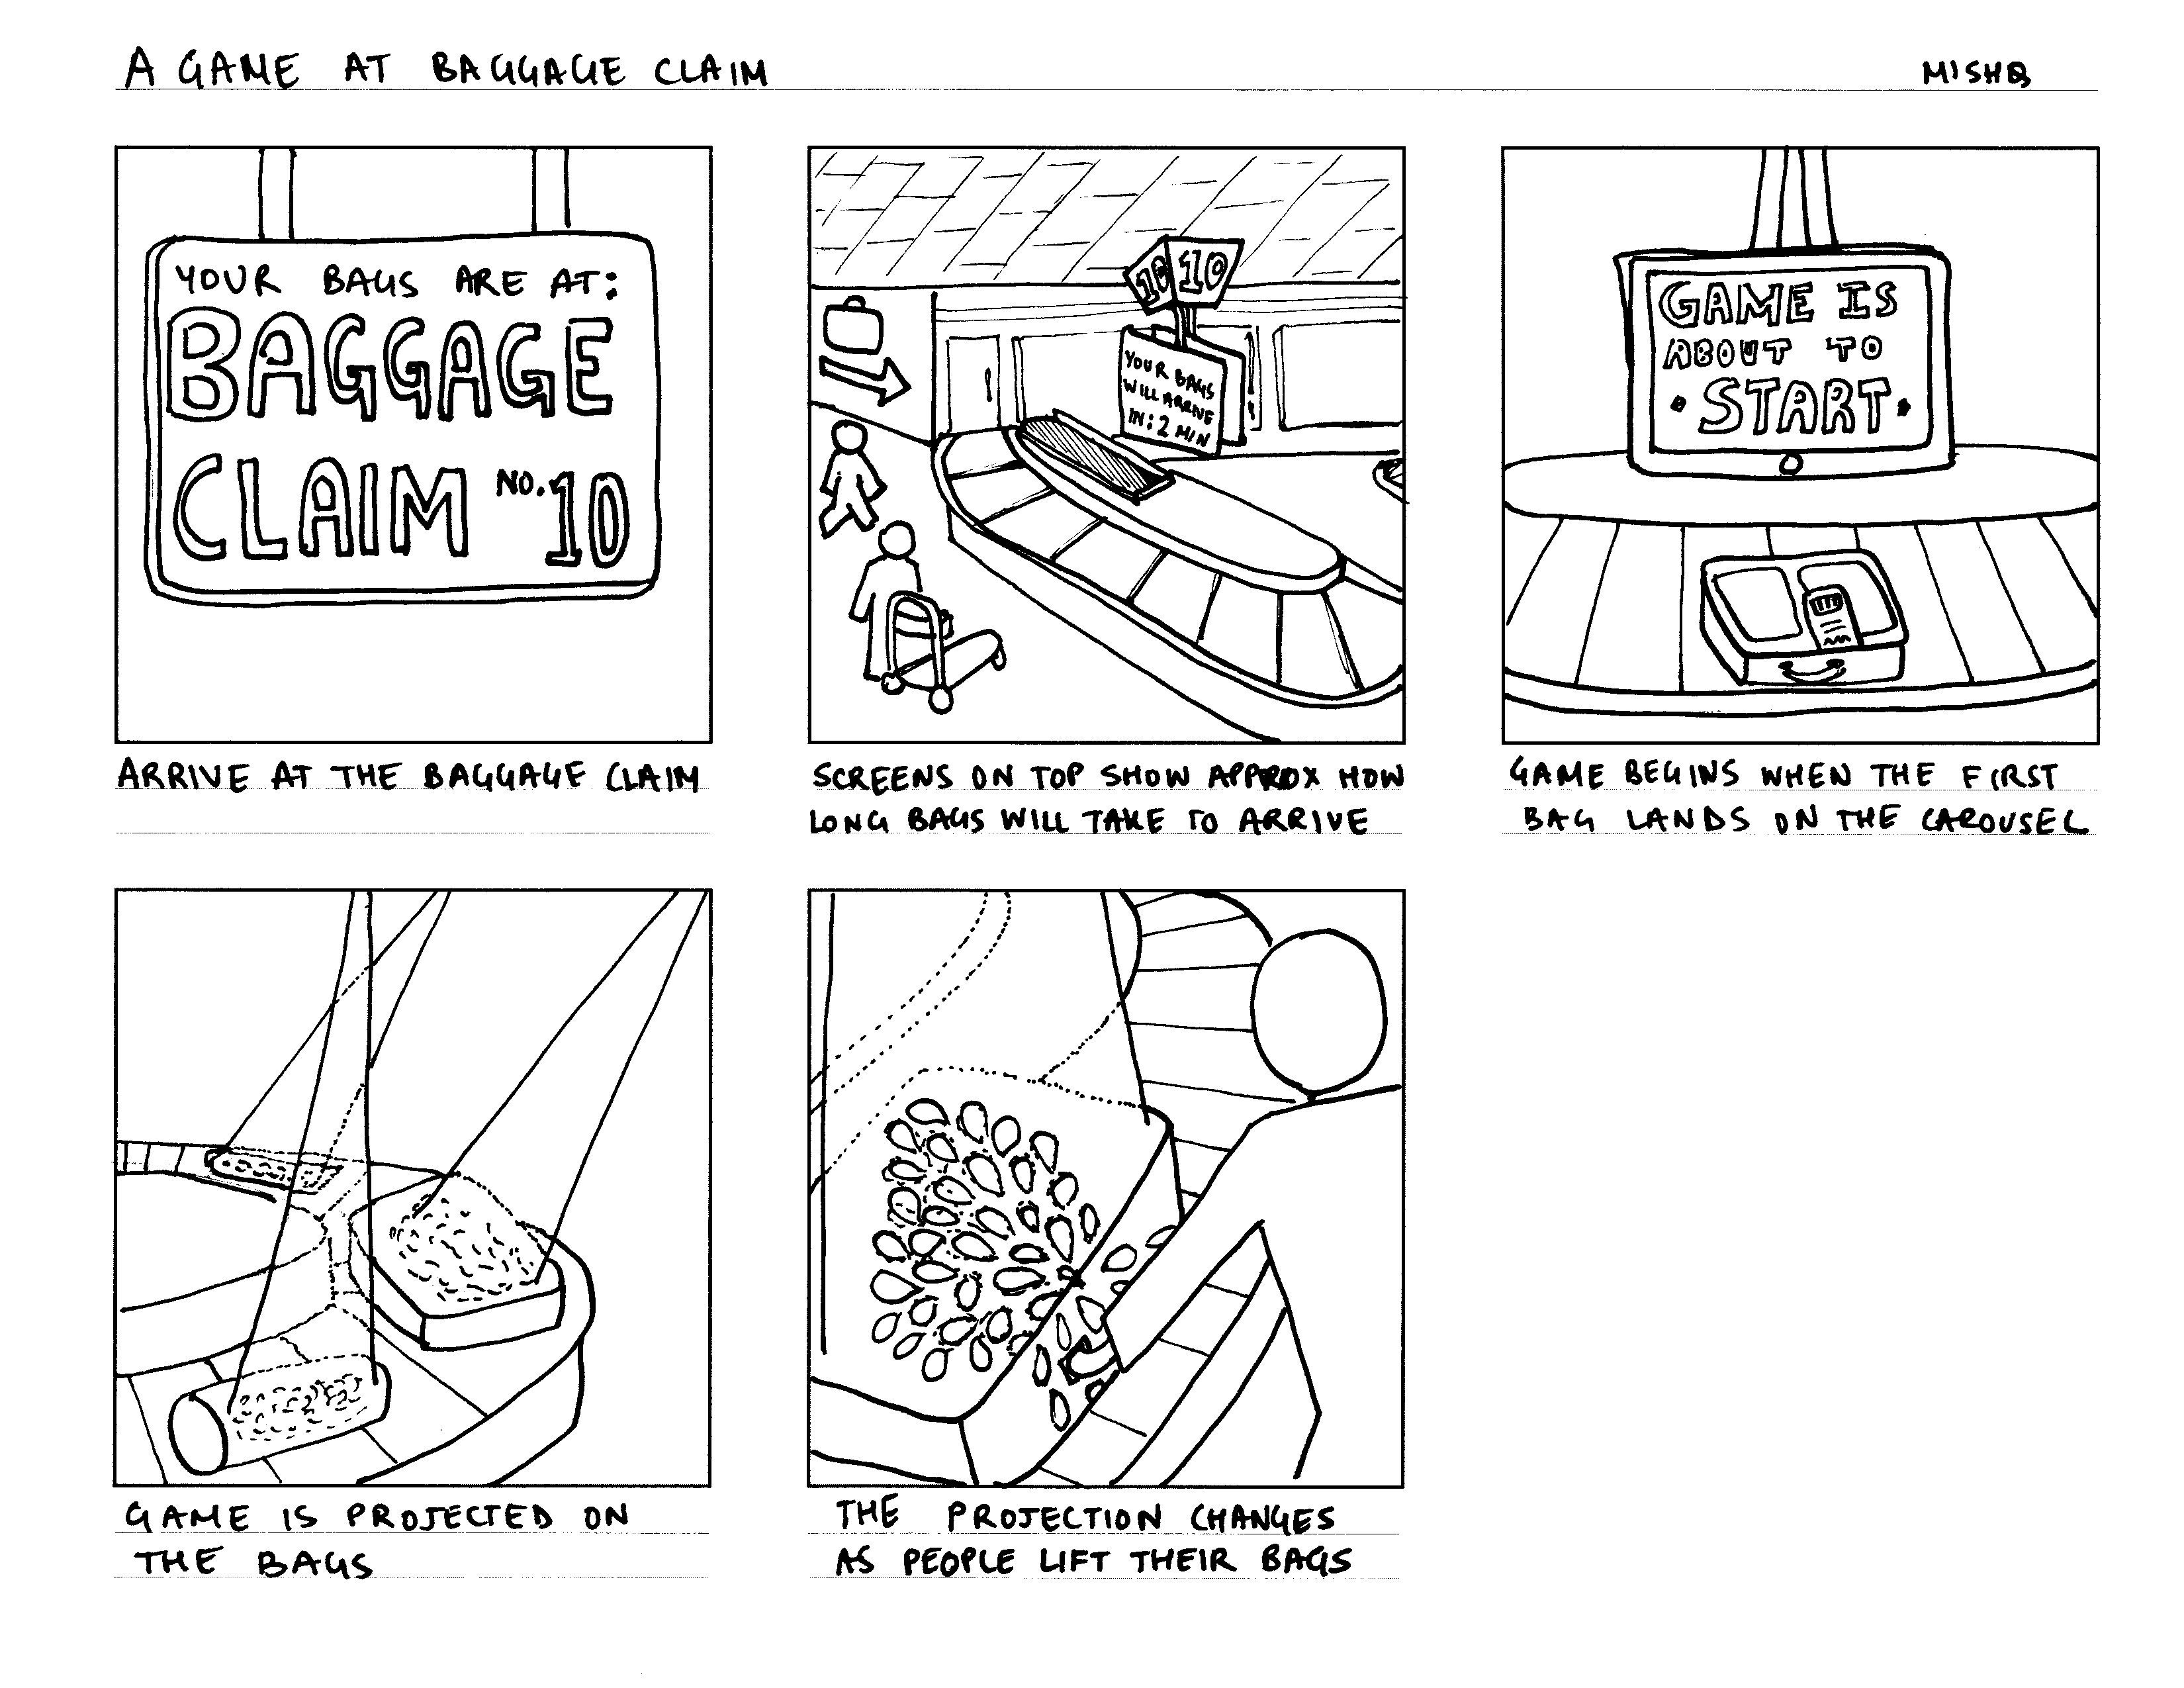 A GAME AT BAGGAGE CLAIM
MISHQ
YOUR BAGS ARE AT:
BAGGAGE
CLAIM NO. 10
ARRIVE AT THE BAGGAGE CLAIM
10 10
YOUR BAGS
WILL ARRIVE
IN: 2 MIN
SCREENS ON TOP SHOW APPROX HOW
LONG BAGS WILL TAKE TO ARRIVE
GAME IS
ABOUT TO
• START •
GAME BEGINS WHEN THE FIRST
BAG LANDS ON THE CAROUSEL
GAME IS PROJECTED ON
THE BAGS
THE PROJECTION CHANGES
AS PEOPLE LIFT THEIR BAGS